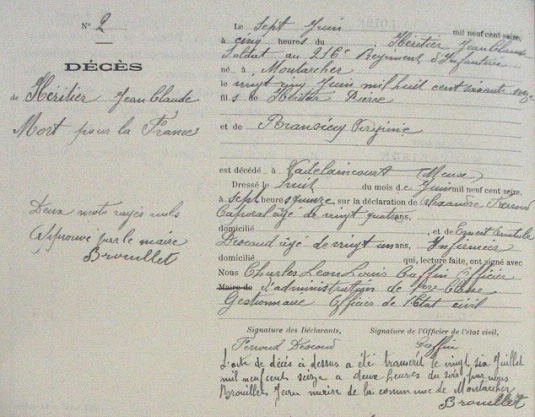 N° 2
DÉCÈS
de Héritier Jean Claude
Mort pour la France
Deux mots rayés nuls
Approuvé par le maire
Brouillet
Le sept Juin mil neuf cent seize,
à cinq heures du Héritier Jean Claude
Soldat au 216e Régiment d'Infanterie
né à Montarcher
le vingt Juin mil huit cent soixante seize
fils de Héritier Pierre
et de Virginie
est décédé à Vadelaincourt (Meuse)
Dressé le huit du mois de Juin mil neuf cent seize,
à sept heures quinze, sur la déclaration de Alexandre
Caporal âgé de vingt quatre ans,
domicilié , et de Ernest
âgé de vingt un ans, Infirmier
domicilié qui, lecture faite, ont signé avec
Nous Charles Léon Louis Caffin Officier
Maire de d'administration de 1ère Classe
Gestionnaire Officier de l'Etat civil
Signature des Déclarants, Signature de l'Officier de l'état civil,
Caffin
L'acte de décès ci dessus a été transcrit le vingt six Juillet
mil neuf cent seize à deux heures du soir par nous
Brouillet Jean maire de la commune de Montarcher
Brouillet